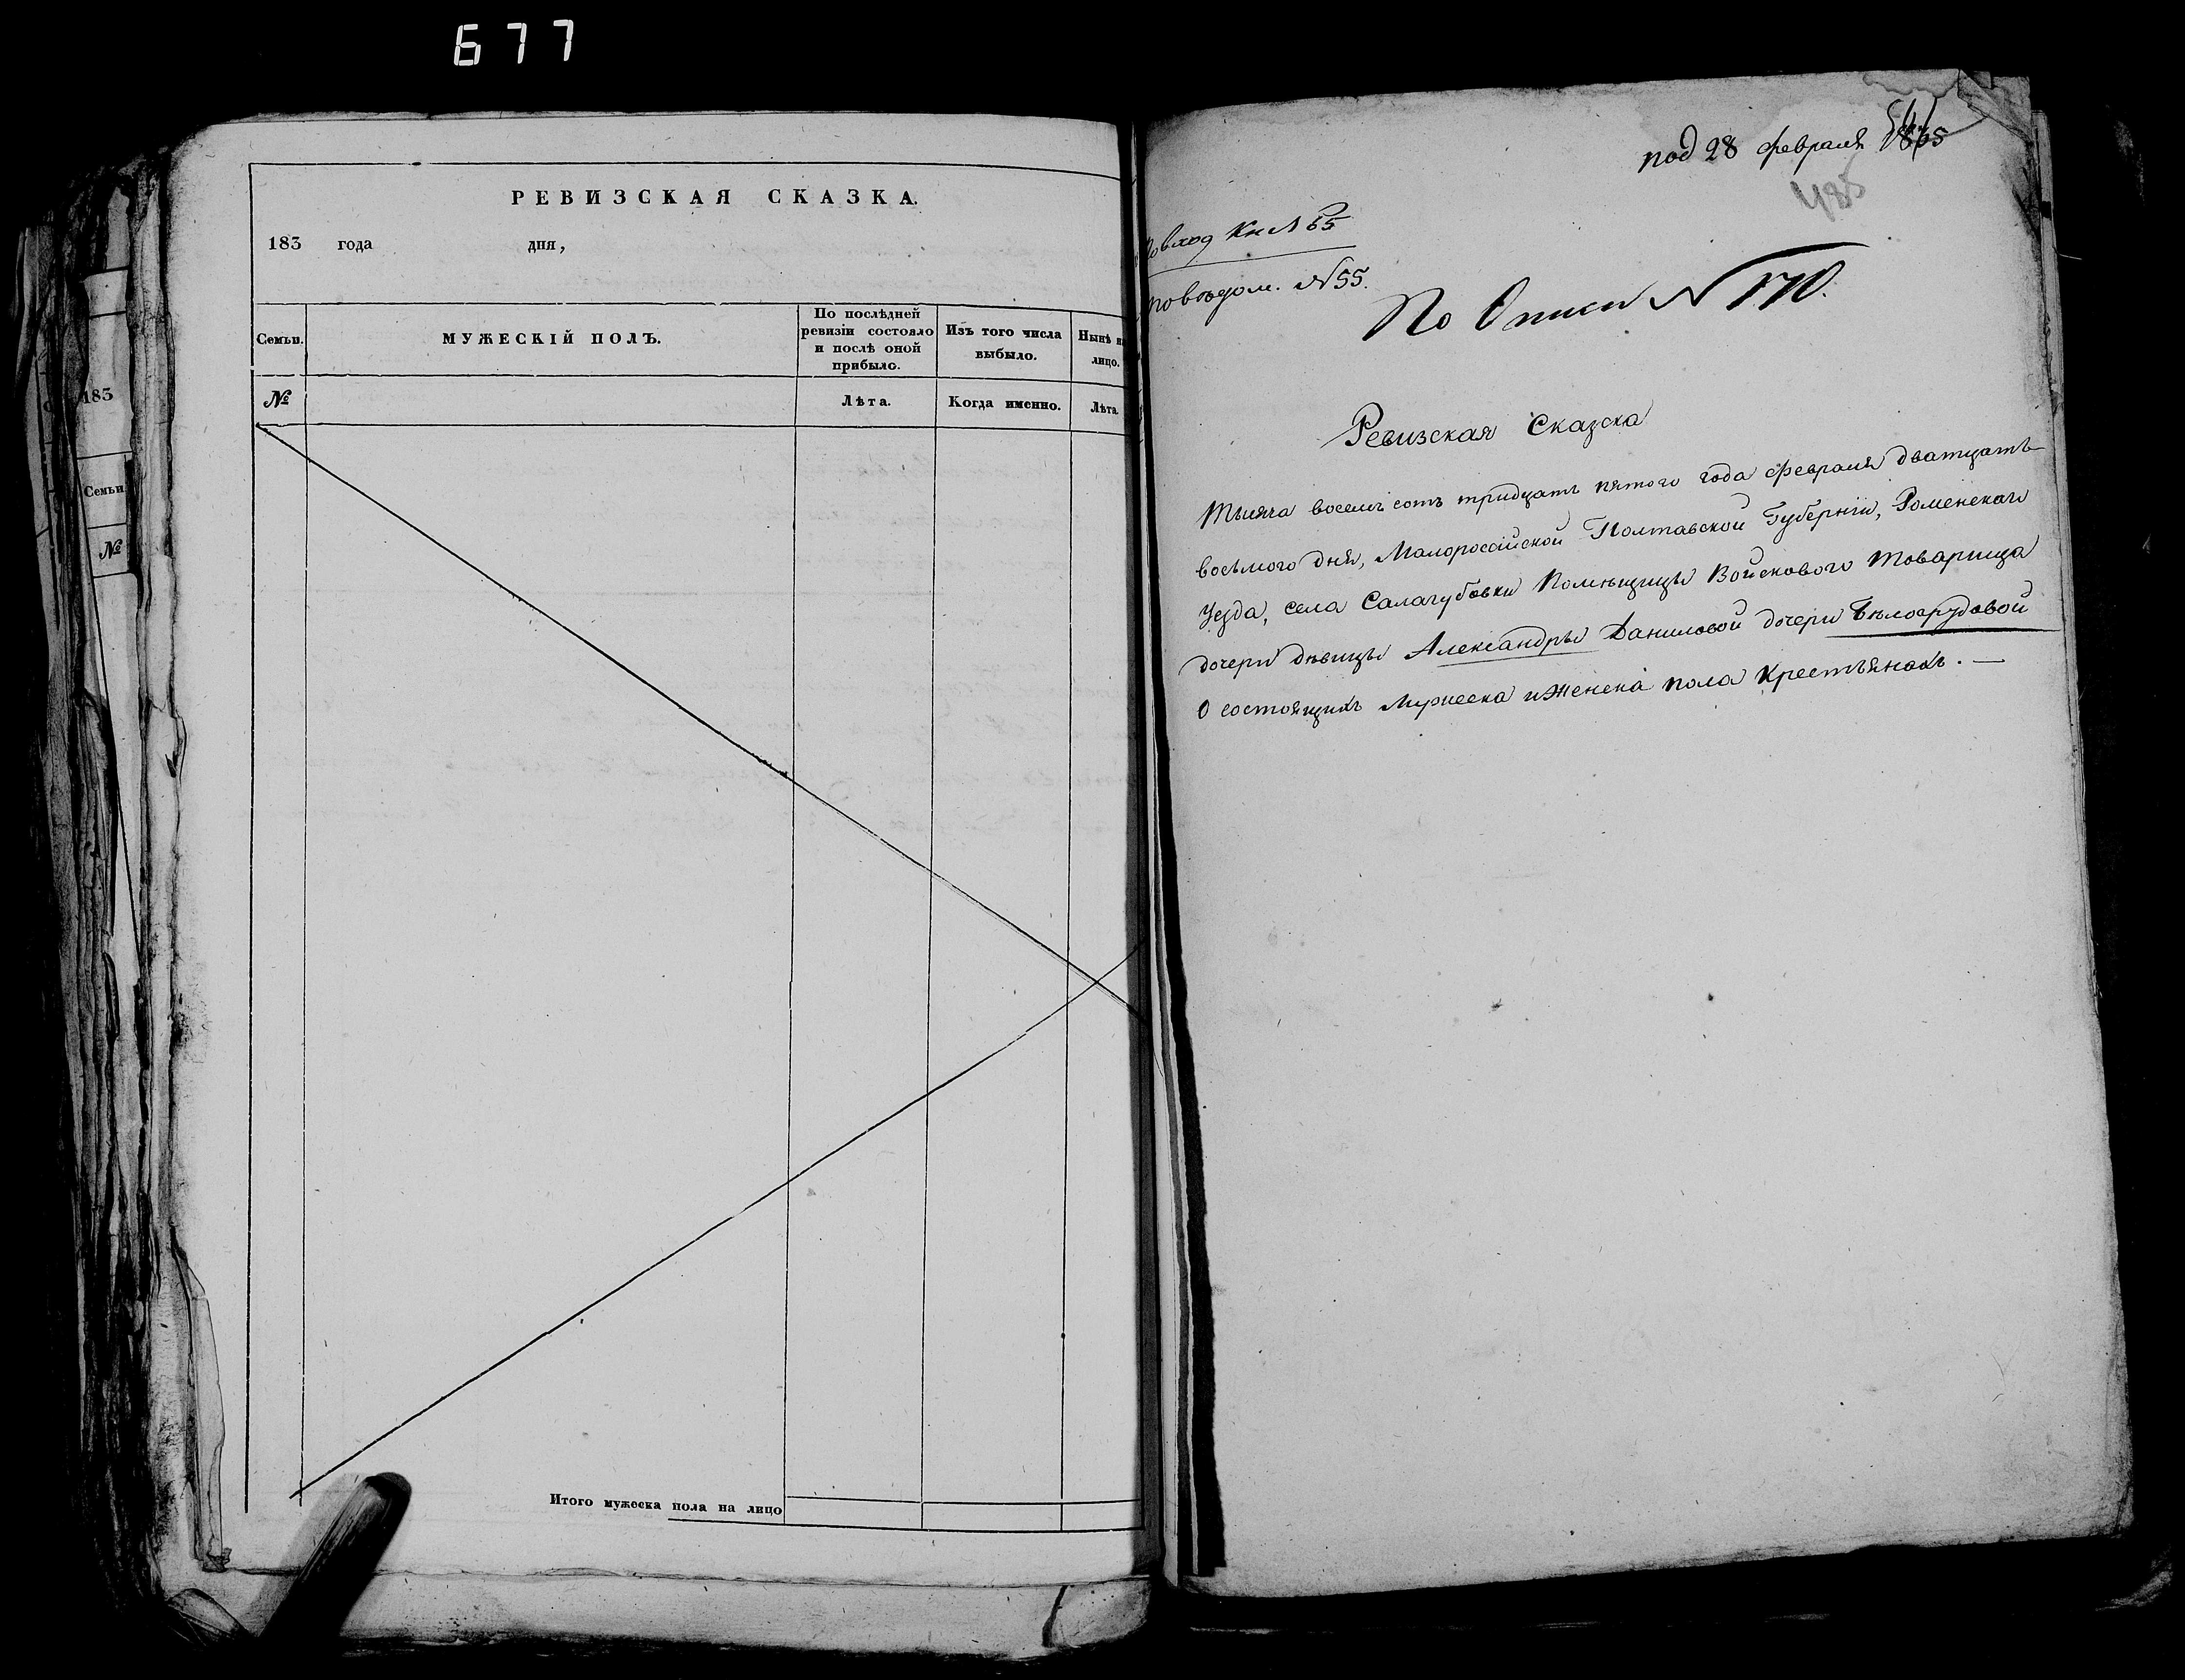 677
РЕВИЗСКАЯ СКАЗКА.
183 года дня,
Семьи.
МУЖЕСКІЙ ПОЛЪ.
По послѣдней ревизіи состояло и послѣ оной прибыло.
Изъ того числа выбыло.
Нынѣ на лицо.
№
Лѣта.
Когда именно.
Лѣта.
Итого мужеска пола на лицо
183
Семьи
№
под 28 февраля 1835
485
По вход Кн № 65
по вѣдом. №55.
По Описи № 170.
Ревизская Сказска
Тысяча восемъ сотъ тридцать пятого года февраля дватцать
восьмого дня, Малоросойской Полтавской Губерніи, Роменского
Уезда, села Салагубовки Помѣщицы Войскового Товарища
дочери дѣвицы Александры Даниловой дочери Бѣлогрудовой
О состоящихъ Мужеска и Женска пола Крестьянахъ. —